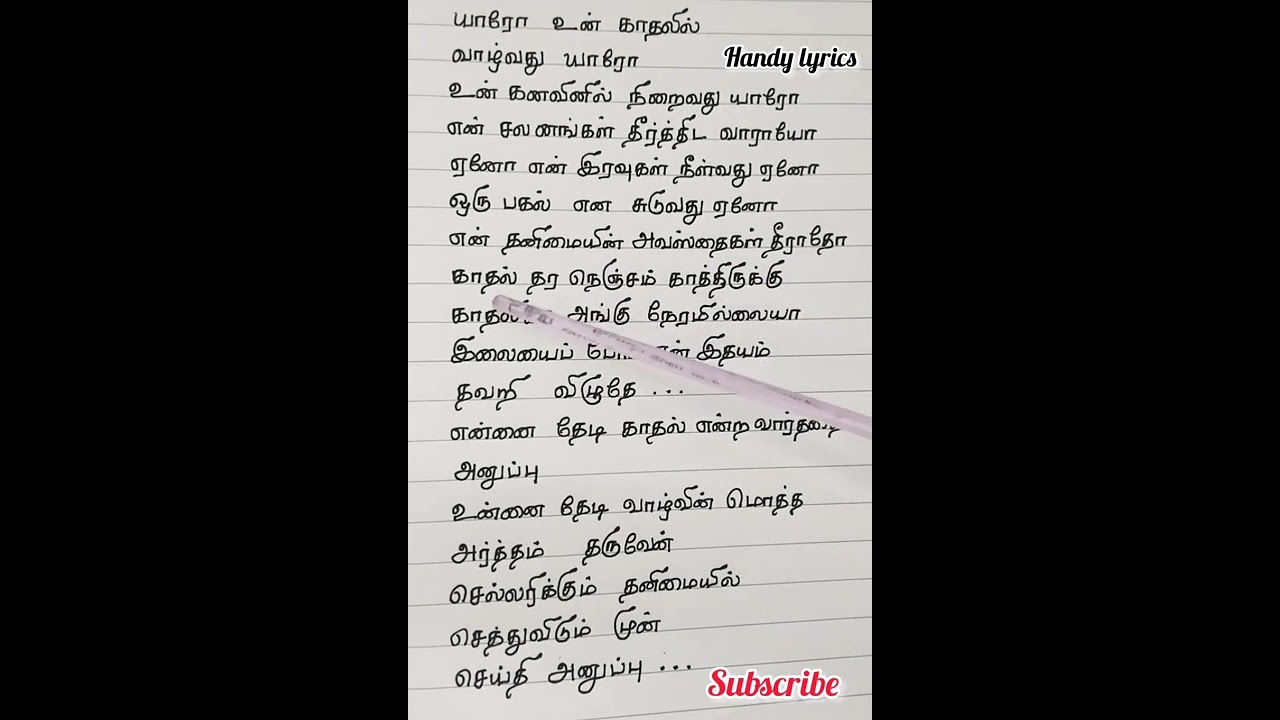 யாரோ உன் காதலில்
வாழ்வது யாரோ
Handy lyrics
உன் கனவினில் நிறைவது யாரோ
என் சலனங்கள் தீர்த்திட வாராயோ
ஏனோ என் இரவுகள் நீள்வது ஏனோ
ஒரு பகல் என சுடுவது ஏனோ
என் தனிமையின் அவஸ்தைகள் தீராதோ
காதல் தர நெஞ்சம் காத்திருக்கு
அங்கு நேரமில்லையா
இலையைப் இதயம்
தவறி விழுதே ...
என்னை தேடி காதல் என்ற
அனுப்பு
உன்னை தேடி வாழ்வின் மொத்த
அர்த்தம் தருவேன்
செல்லரிக்கும் தனிமையில்
செத்துவிடும் முன்
செய்தி அனுப்பு ...
Subscribe